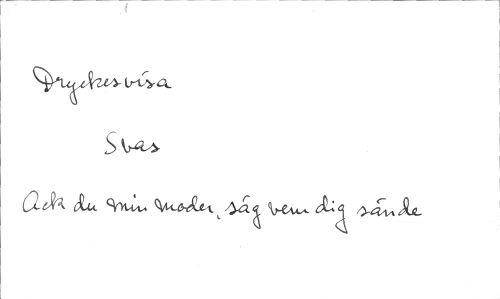 Dryckesvisa
Svas
Ack du min moder, säg vem dig sände